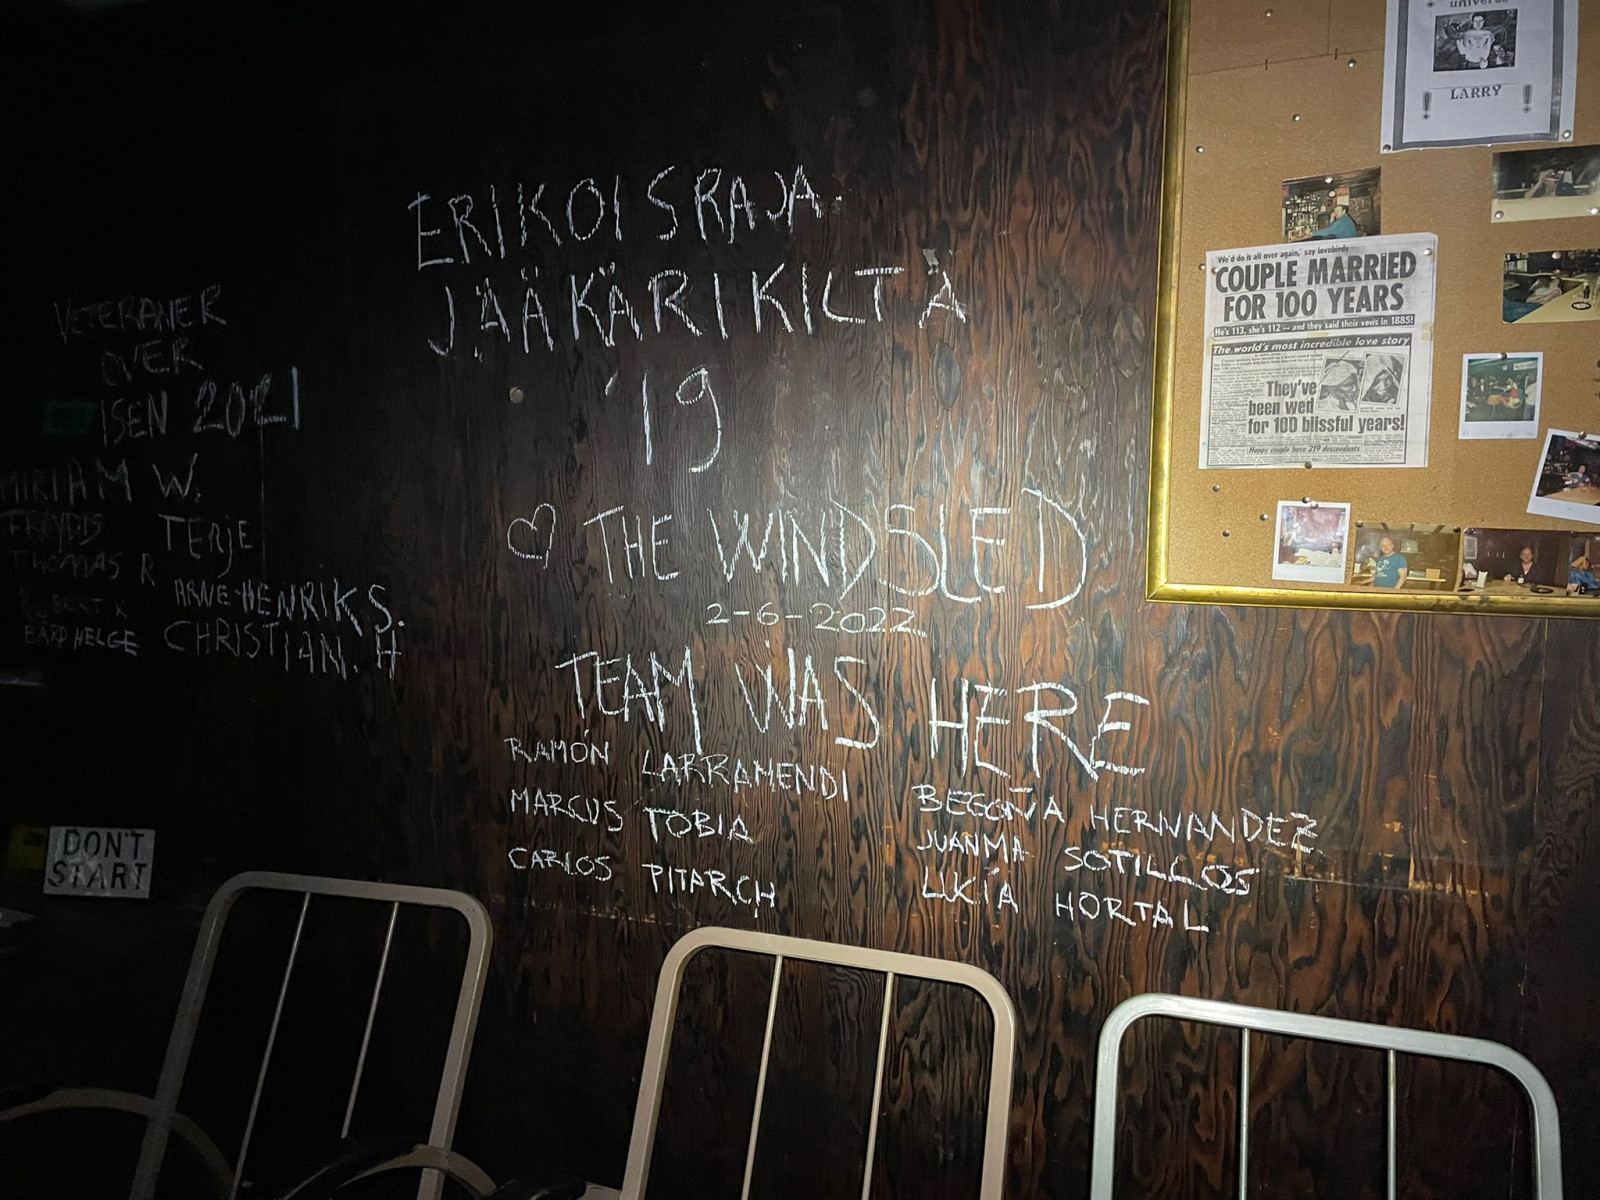 VETERANER
OVER
ISEN 2021
MIRIAM W.
FRØYDIS TERJE
THOMAS R
ARNE-HENRIK S.
BÅRD HELGE CHRISTIAN. H
DON'T
START
ERIKOISRAJA-
JÄÄKÄRIKILTA
'19
THE WINDSLED
2-6-2022
TEAM WAS HERE
RAMÓN LARRAMENDI
MARCUS TOBIA
CARLOS PITARCH
BEGOÑA HERNANDEZ
JUANMA SOTILLOS
LUCÍA HORTAL
universe
! LARRY !
'We'd do it all over again,' say lovebirds
COUPLE MARRIED
FOR 100 YEARS
He's 113, she's 112 — and they said their vows in 1885!
The world's most incredible love story
They've
been wed
for 100 blissful years!
Happy couple have 219 descendants